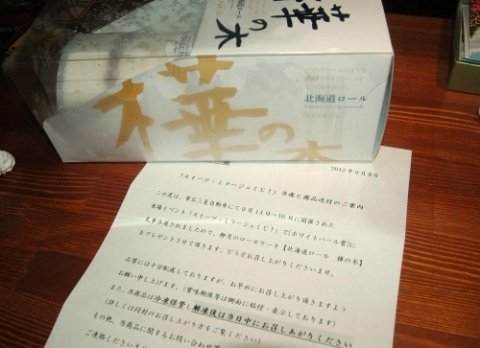 樺の木
北海道ロール
樺の木
2012年9月吉日
「スイーツ・ミラージュくじ!」当選と商品送付のご案内
この度は、帯広三菱自動車にて9月14日~16日に開催された
来場イベント「スイーツ・ミラージュくじ!」で【ホワイトパール賞】に
見事当選されましたので、柳月のロールケーキ【北海道ロール 樺の木】
をプレゼントさせて頂きます。どうぞお召し上がりくださいませ。
品質には十分配慮しておりますが、お早めにお召し上がり頂きますよう
お願い申し上げます。(賞味期限等は側面に貼付・表示しております)
また、当商品は冷凍保管し解凍後は当日中にお召しあがりください
(詳しくは同封のお召し上がり方をご覧ください)
その他、当商品に関するお問い合わせ等
ご連絡くださいませ